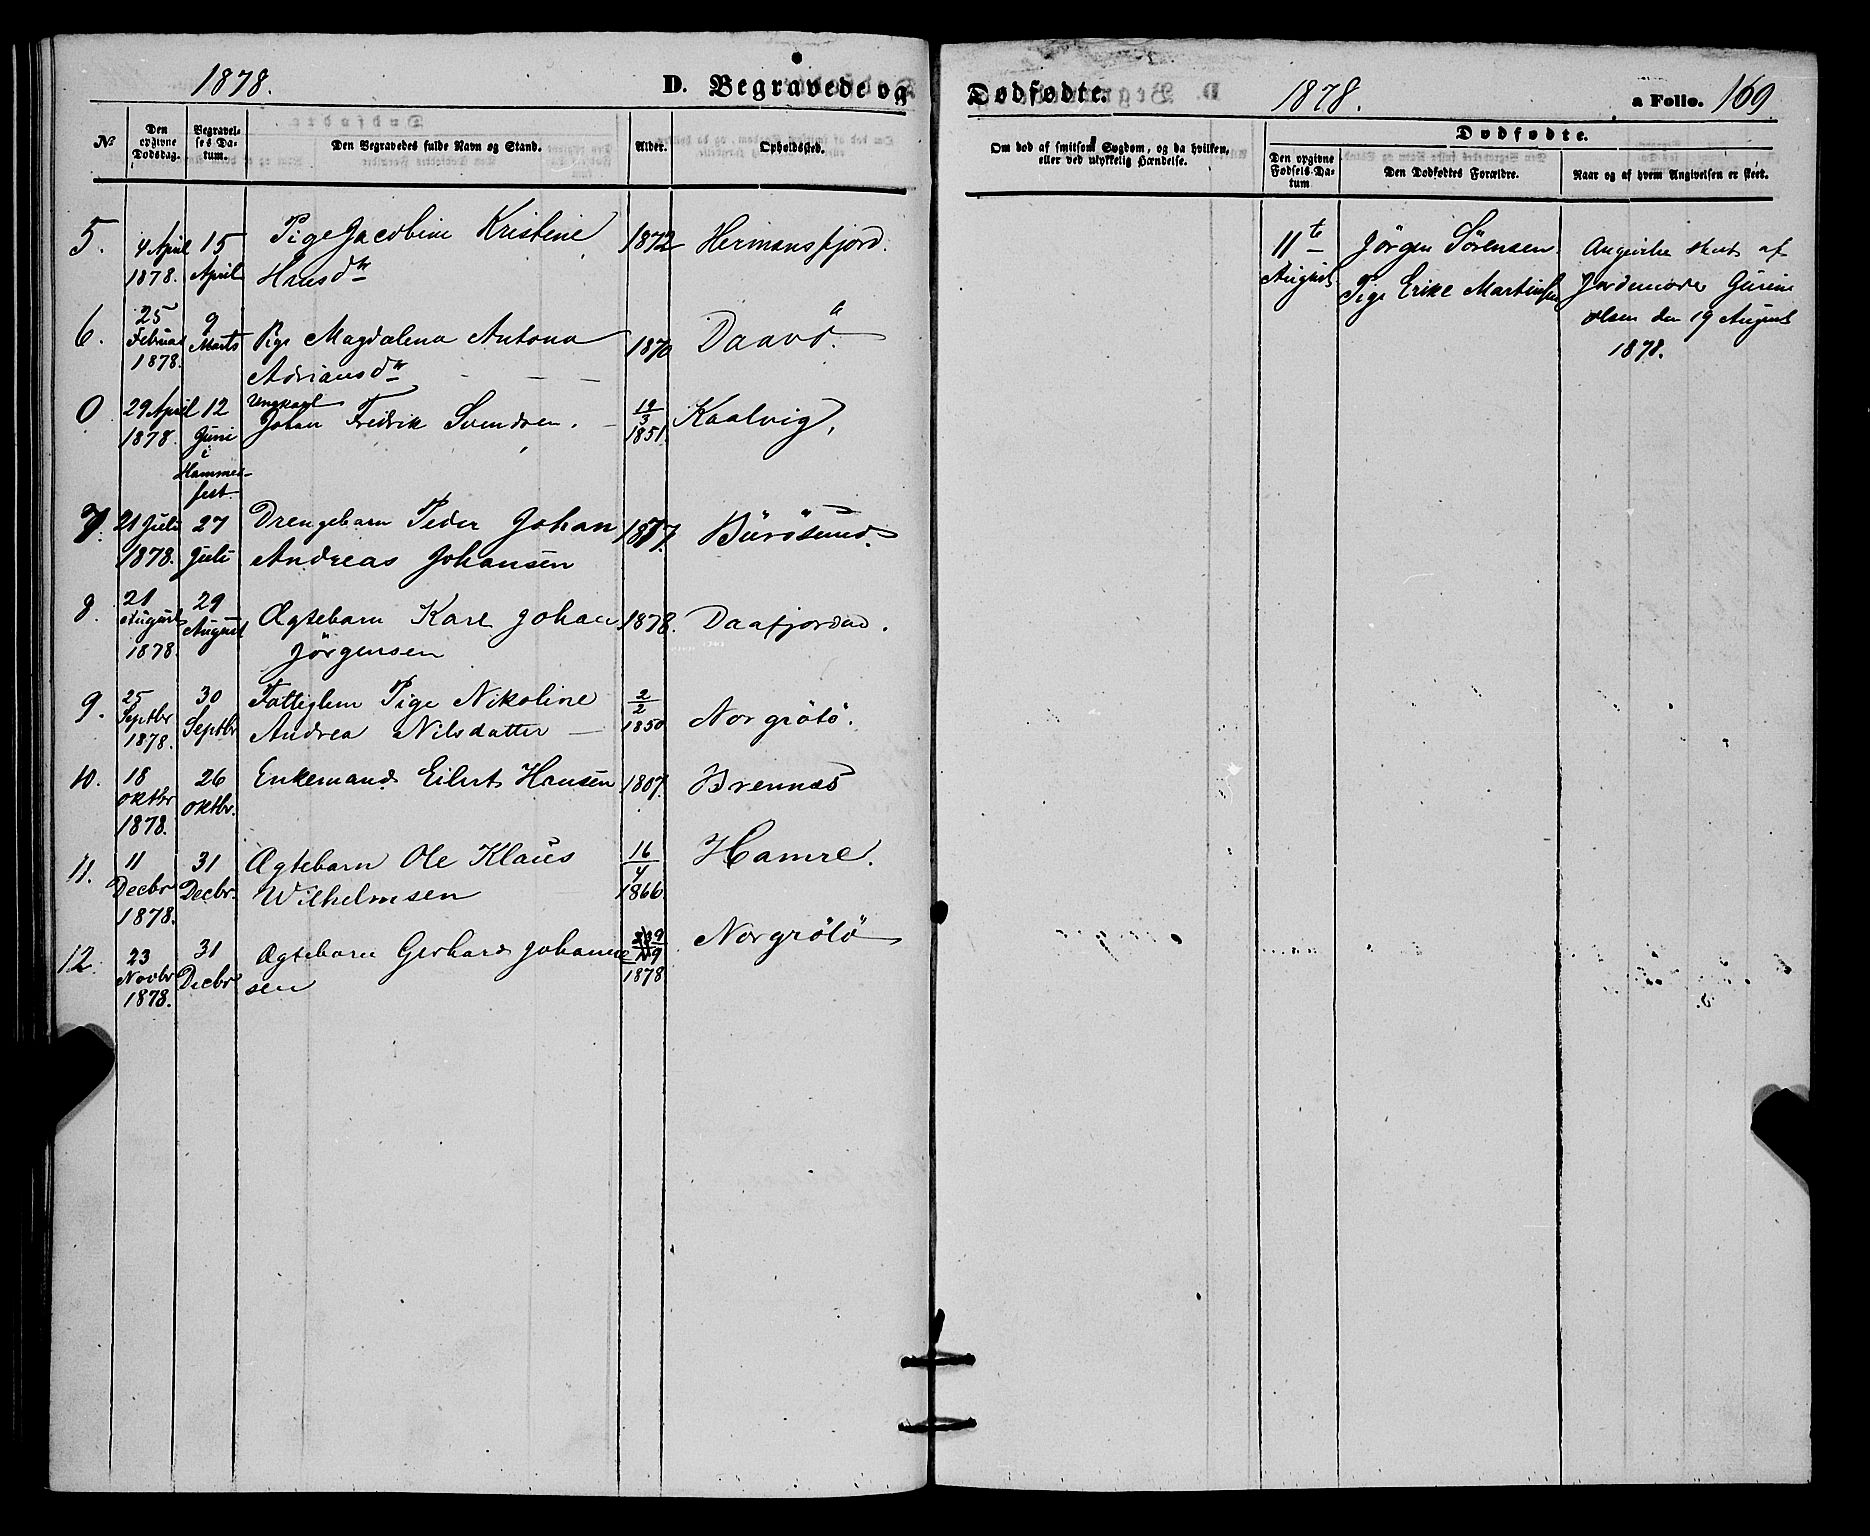 1878.
D. Begravede og
Dødfødte.
1878.
a Folio. 169
№
Den opgivne Dødsdag.
Begravelses Datum.
Den Begravedes fulde Navn og Stand.
Alder.
Opholdssted.
Om død af smitsom Sygdom, og da hvilken,
eller ved ulykkelig Hændelse.
Dødfødte.
Den opgivne Fødsels-Datum
Den Dødfødtes Forældre.
Naar og af hvem Angivelsen er skeet.
5. 4 April 15 Pige Jacobine Kristine 1872 Hermansfjord.
1878. April Hansdtr
6. 25 Februar 1878. 9 Marts Pige Magdalena Antona 1870 Daavø.
Adriansdtr
0 29 April 12 Ungkarl Johan Fredrik Svendsen. 19/3 1851. Kaalvig,
1878. Juni i Hammerfest.
7. 21 Juli 27 Drengebarn Peder Johan 1877. Bürøsund.
1878. Juli Andreas Johansen
8. 21 August 1878. 29 August Ægtebarn Karl Johan 1878. Daafjorden.
Jørgensen
9. 25 Septbr 1878. 30 Septbr Fattiglem Pige Nikoline 2/2 1850 Norgrøtø.
Andrea Nilsdatter
10. 18 Oktbr 1878. 26 Oktbr. Enkemand Eilert Hansen 1807. Brennæs
11. 11 Decbr 1878. 31 Decbr. Ægtebarn Ole Klaus 16/4 1866. Hamre.
Wilhelmsen
12. 23 Novbr 1878. 31 Decbr Ægtebarn Gerhard Johanne 9/9 1878 Norgrøtø
sen
11te August
Jørgen Sørensen
Pige Erike Martinsen
Angivelse skeet af
Jordemoder Gurine
Olsen den 19 August
1878.